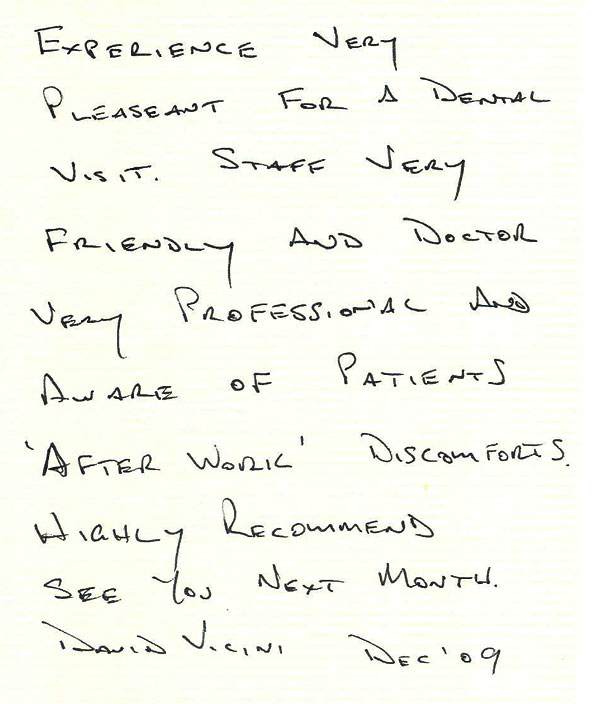 Experience Very
Pleaseant For A Dental
Visit. Staff Very
Friendly And Doctor
Very Professional And
Aware of Patients
'After Work' Discomforts.
Highly Recommend
See You Next Month.
David Vicini Dec '09